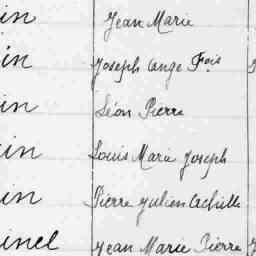 in Jean Marie
in Joseph Ange Fçois
in Léon Pierre
in Louis Marie Joseph
in Pierre Julien Achille
inel Jean Marie Pierre